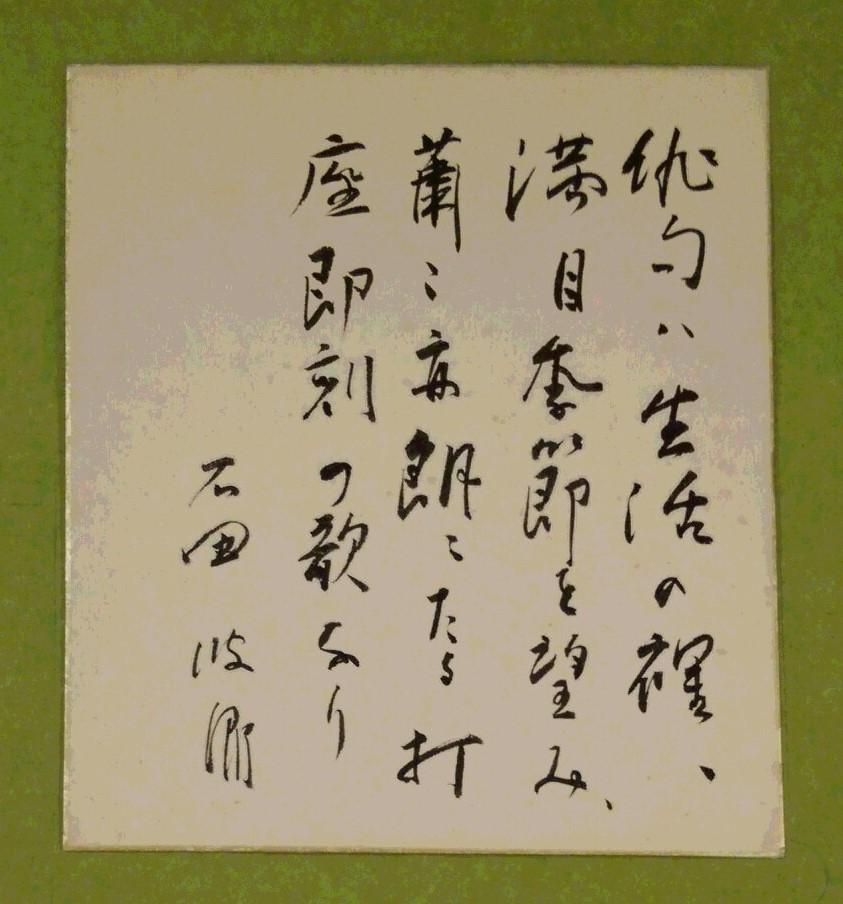 俳句ハ生活の裡、
満目季節を望み、
蕭々亦朗々たる打
座即刻の歌なり
石田波郷